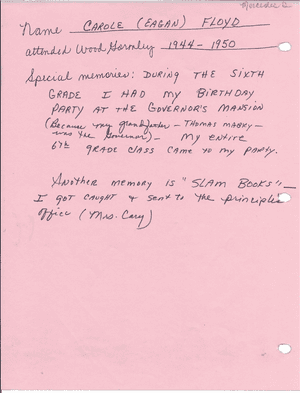 Mercedes R.
Name CAROLE (EAGAN) FLOYD
attended Wood Gormley 1944-1950
Special memories: DURING THE SIXTH
GRADE I HAD MY BIRTHDAY
PARTY AT THE GOVERNOR'S MANSION
(Because my grandfather - THOMAS MABRY -
was the Governor) - MY ENTIRE
6th GRADE CLASS CAME TO MY PARTY.
ANOTHER MEMORY IS "SLAM BOOKS" -
I GOT CAUGHT & sent to the principle's
office (Mrs. Cary)